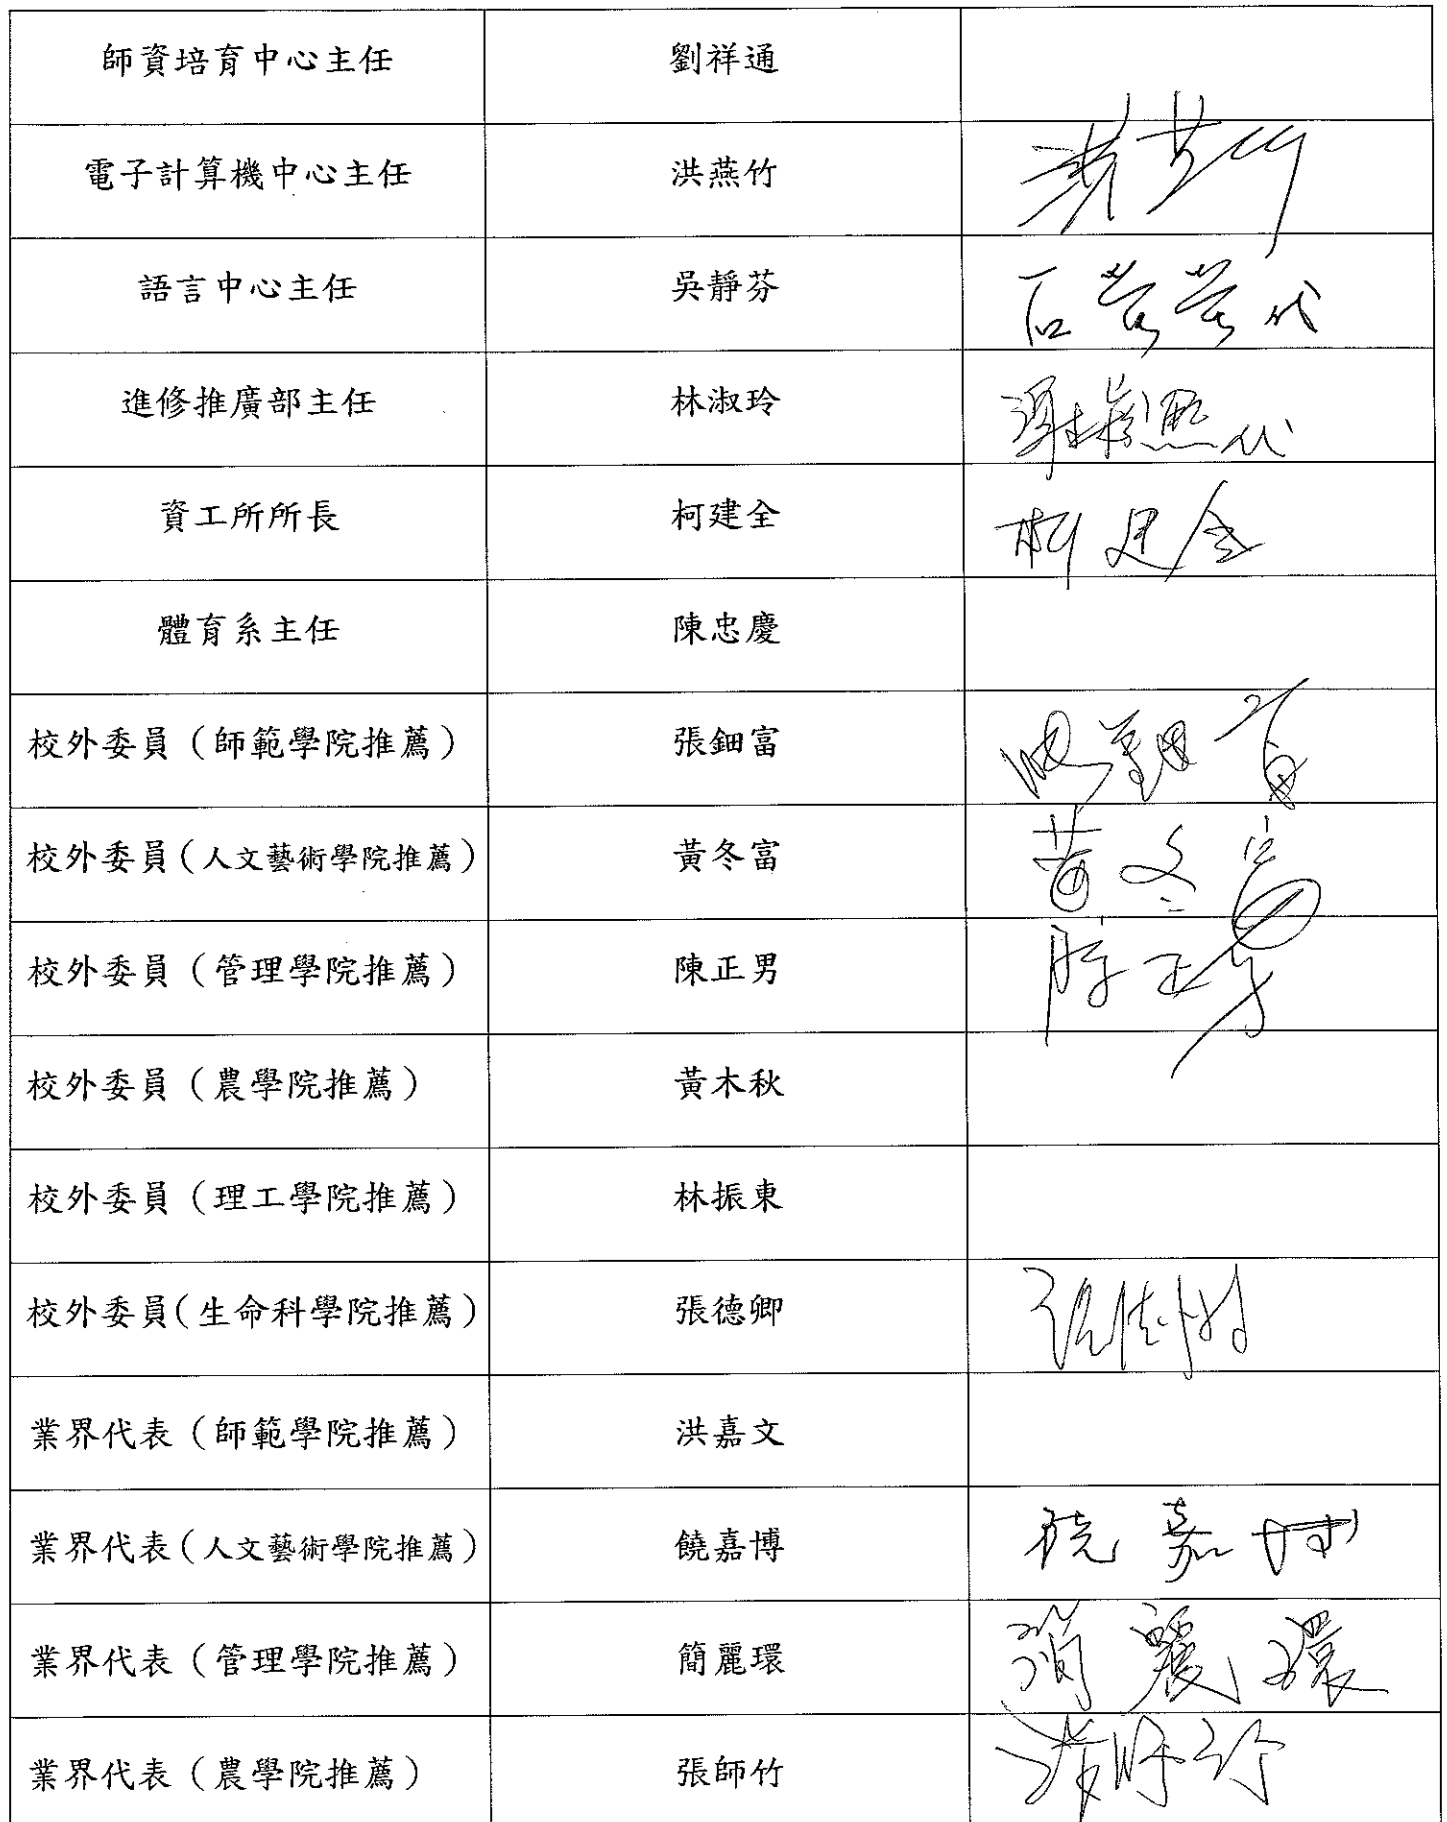 師資培育中心主任 劉祥通
電子計算機中心主任 洪燕竹 洪燕竹
語言中心主任 吳靜芬 代
進修推廣部主任 林淑玲 代
資工所所長 柯建全 柯建全
體育系主任 陳忠慶
校外委員（師範學院推薦） 張鈿富
校外委員（人文藝術學院推薦） 黃冬富 黃冬富
校外委員（管理學院推薦） 陳正男 陳正男
校外委員（農學院推薦） 黃木秋
校外委員（理工學院推薦） 林振東
校外委員（生命科學院推薦） 張德卿 張德卿
業界代表（師範學院推薦） 洪嘉文
業界代表（人文藝術學院推薦） 饒嘉博 饒嘉博
業界代表（管理學院推薦） 簡麗環 簡麗環
業界代表（農學院推薦） 張師竹